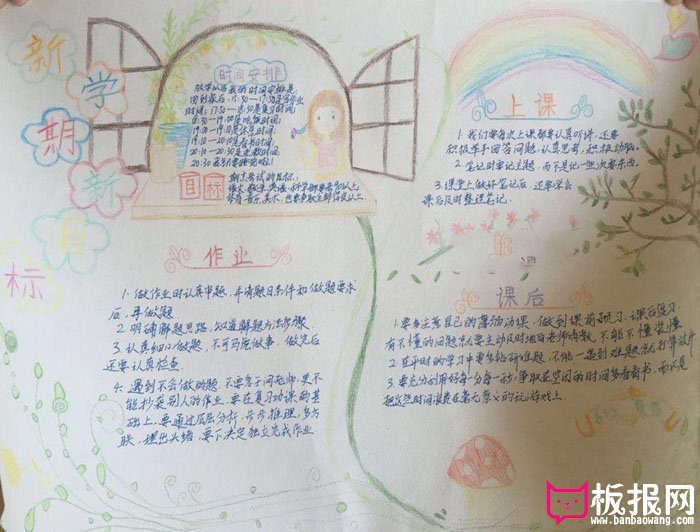 新学期新目标
时间安排
放学以后我的时间安排是:
目标
上课
1.我们要每次上课都要认真听讲,还要
积极举手回答问题,认真思考,积极动脑。
2.笔记时牢记主题,而不是记一些次要东西。
3.课堂上做好笔记后,还要学会
课后及时整理笔记。
作业
1.做作业时认真审题,弄清题目条件和做题要求
后,再做题
2.明确解题思路,知道解题方法步骤。
3.认真细心做题,不可马虎做事,做完后
还要认真检查.
4.遇到不会做的题,不要急于问老师,更不
能抄袭别人的作业,要在复习功课的基
础上,要通过层层分析,步步推理,多方
联,理出头绪,要下决定独立完成作业
课后
有不懂的问题就要主动及时地向老师请教,不能不懂装懂
2.在平时的学习中要多钻研难题,不能一遇到难题就打算放弃
3.要充分利用好每一分每一秒,争取在空闲的时间多看看书,而不是
把这些时间浪费在毫无意义的玩游戏上.
板报网
www.banbaowang.com